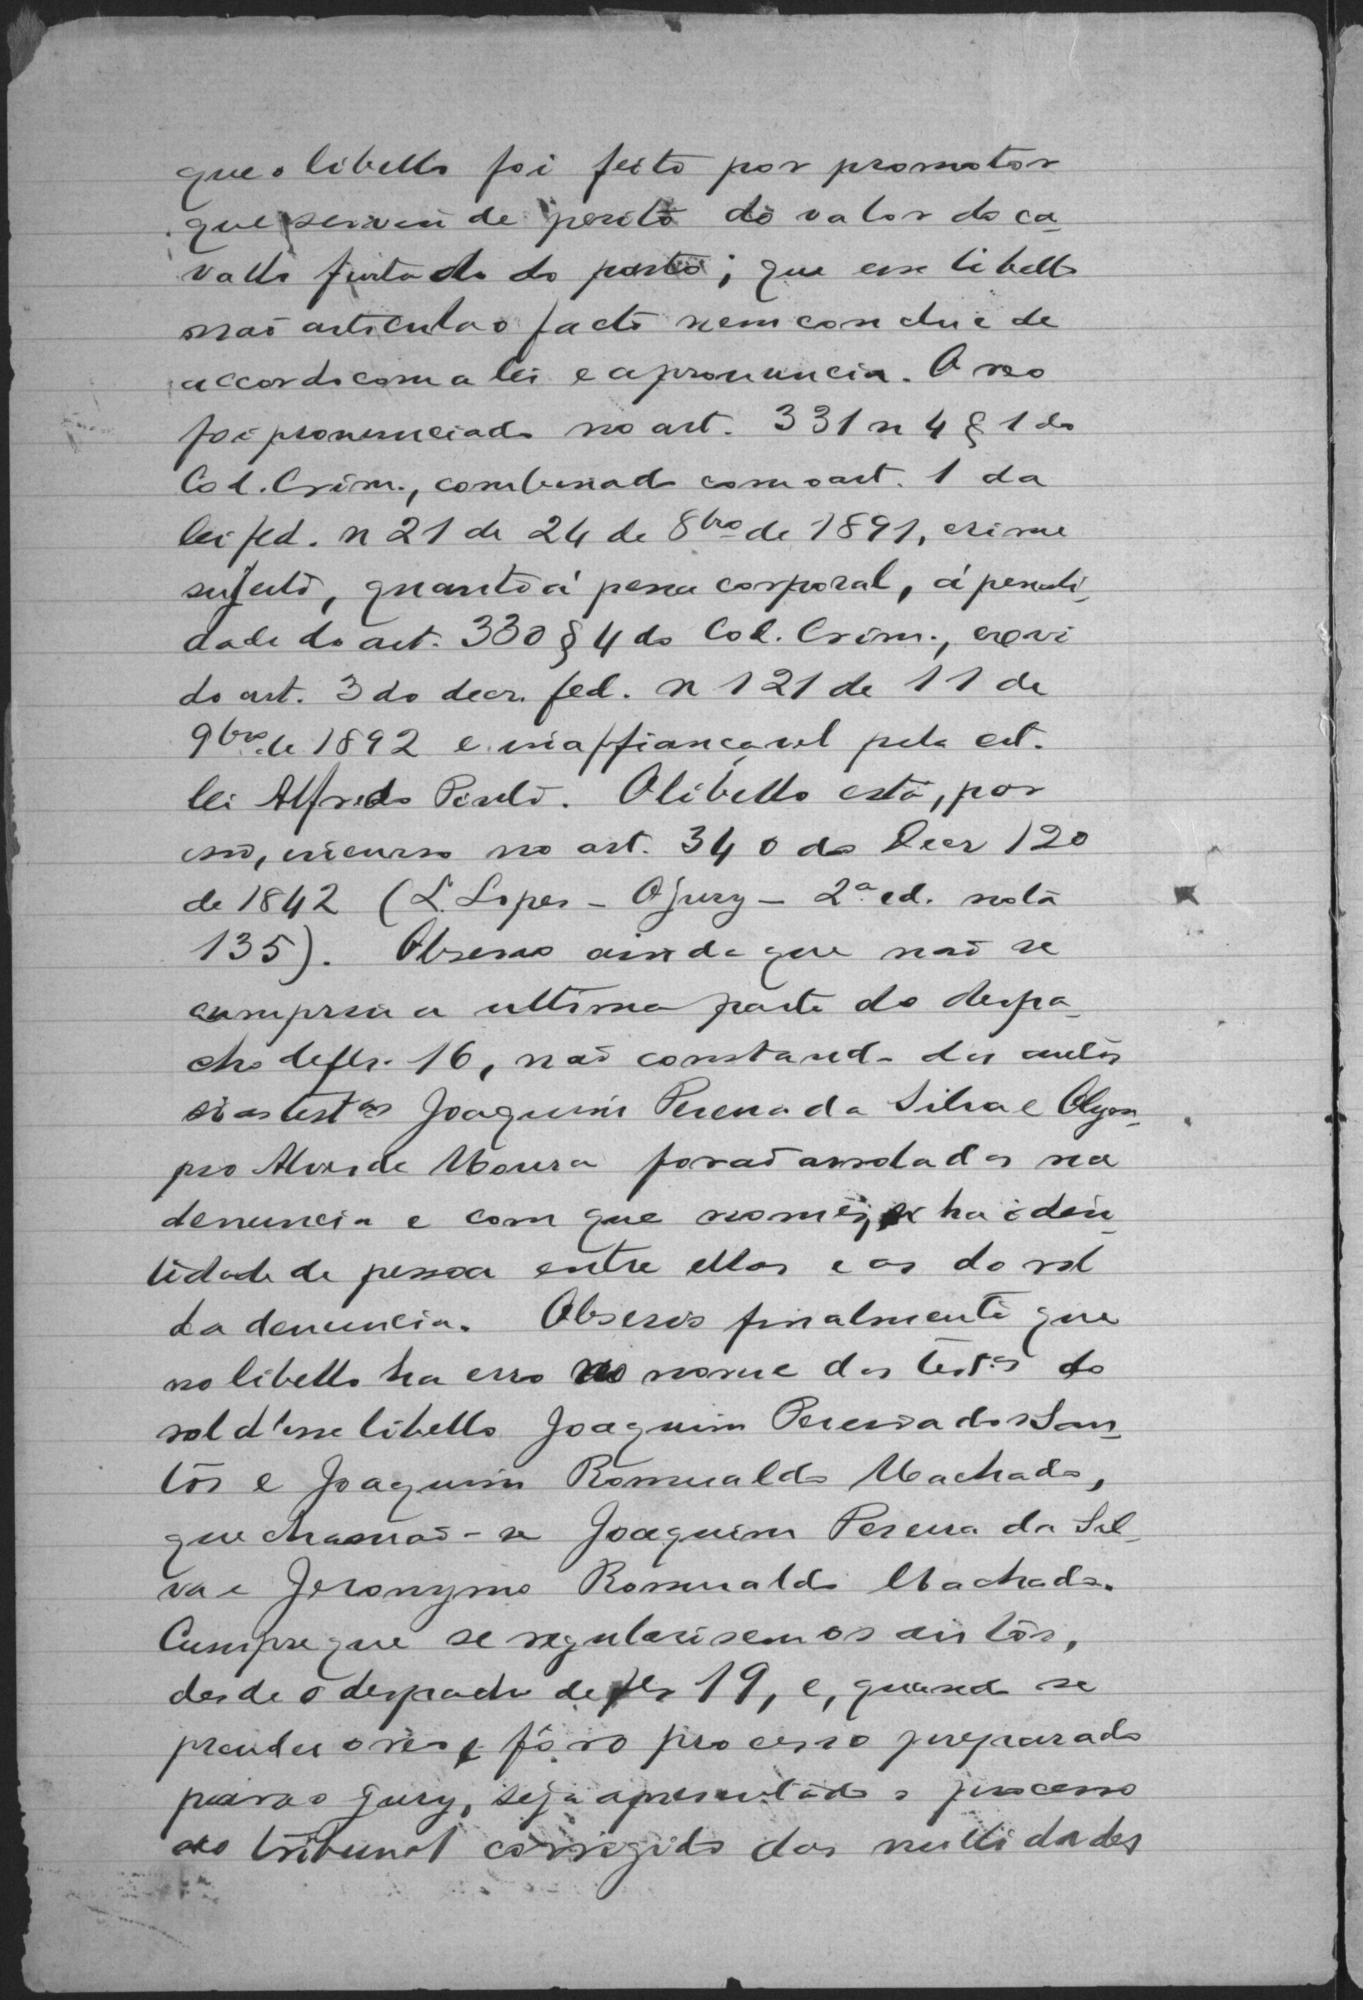 que o libello foi feito por promotor
que serviu de perito do valor do ca-
vallo furtado do pasto; que esse libello
não articula o facto nem conclue de
accordo com a lei e a pronuncia. O reo
foi pronunciado no art. 331 n 4 § 1 do
Cod. Crim., combinado com o art. 1 da
lei fed. n 21 de 24 de 8bro de 1891, crime
sujeito, quanto á pena corporal, á penali-
dade do art. 330 § 4 do Cod. Crim., ex vi
do art. 3 do decr. fed. n 121 de 11 de
9bro de 1892 e inaffiançavel pela cit.
lei Alfredo Pinto. O libello está, por
isso, incurso no art. 340 do Decr 120
de 1842 (L. Lopes - O jury - 2ª ed. nota
135). Observo ainda que não se
cumpriu a ultima parte do despa-
cho de fls. 16, não constando dos autos
si as testas Joaquim Pereira da Silva e Olym-
pio Alves de Moura forão arrolados na
denuncia e com que nomes, se ha iden-
tidade de pessoa entre ellas e as do rol
da denuncia. Observo finalmente que
no libello ha erro no nome das testas do
rol d'esse libello Joaquim Pereira dos San-
tos e Joaquim Romualdo Machado,
que chamão-se Joaquim Pereira da Sil-
va e Jeronymo Romualdo Machado.
Cumpre que se regularisem os autos,
desde o despacho de fls 19, e, quando se
prender o reo e fôr o processo preparado
para o jury, seja apresentado o processo
ao tribunal corrigido das nullidades